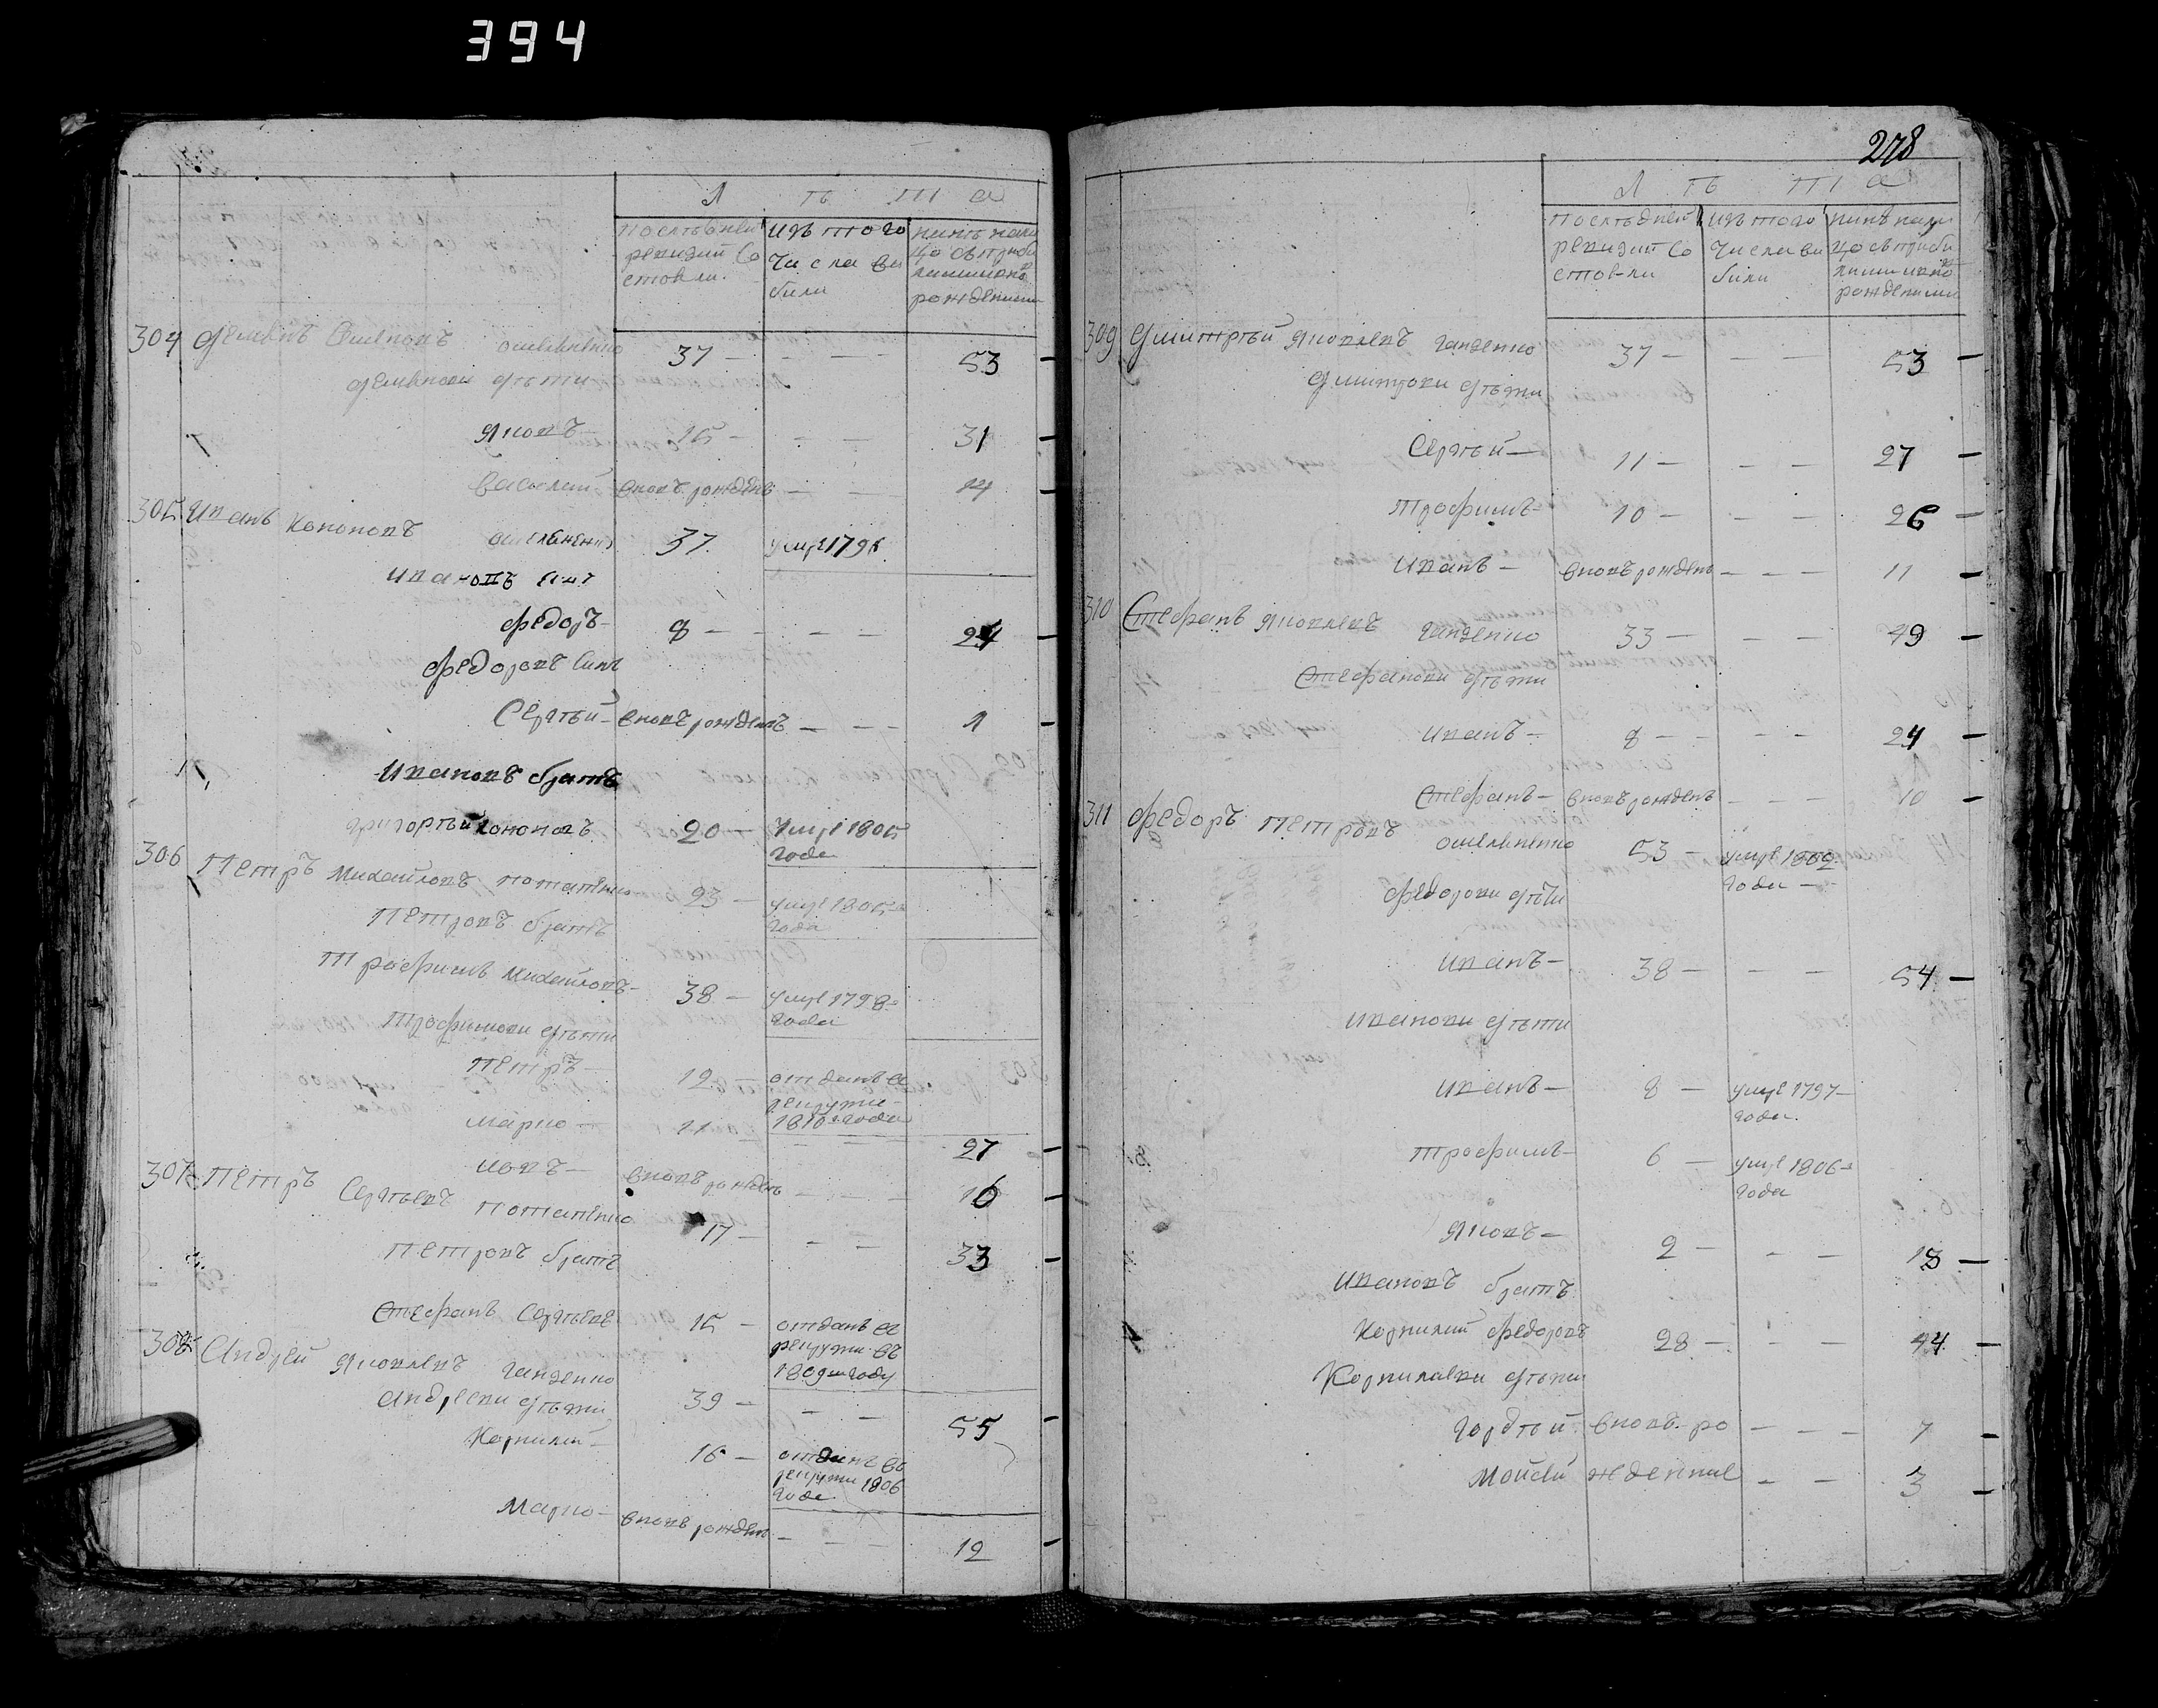 394
Л ѣ т а
последней ревизии со стояли
изъ того числа вы были
ныне нали цо съ прибы лыми и ново рожденными
304 Демьянъ Омельченко 37 — — — 53
Демьяновы дѣти
Яковъ 15 — — — 31
Василий вновь рожденъ — — 14
305 Иванъ Кононовъ Омельченко 37 умре 1796
Ивановъ сынъ
Федоръ 8 — — — 24
Федоровъ сынъ
Сергѣй вновь рожденъ — — — 1
Ивановъ братъ
Григорѣй Кононовъ 20 — умре 1805 года
306 Петръ Михайловъ Потапенко 23 — умре 1805 года
Петровъ братъ
Трофимъ Михайловъ 38 — умре 1798 года
Трофимовы дѣти
Петръ 12 — отданъ в рекруты 1810 года
Марко 11 — — 27
Иовъ вновь рожденъ — — — 16
307 Петръ Сергѣевъ Потапенко 17 — — — 33
Петровъ братъ
Стефанъ Сергѣевъ 15 — отданъ въ рекруты въ 1809м году
308 Андрей Яковлевъ Ганзенко 39 — — — 55
Андреевы дѣти
Корнилий 16 — отданъ въ рекруты 1806 года
Марко вновь рожденъ — — — 12
278
Л ѣ т а
последней ревизии со стояли
изъ того числа вы были
ныне нали цо съ прибы лыми и ново рожденными
309 Дмитрѣй Яковлевъ Ганзенко 37 — — — 53
Дмитровы дѣти
Сергѣй 11 — — — 27
Трофимъ 10 — — — 26
Иванъ вновь рожденъ — — — 11
310 Стефанъ Яковлевъ Ганзенко 33 — — — 49
Стефановы дѣти
Иванъ 8 — — — 24
Стефанъ вновь рожденъ — — — 10
311 Федоръ Петровъ Омельченко 53 — умре 1802 года
Федоровы дѣти
Иванъ 38 — — — 54
Ивановы дѣти
Иванъ 8 — умре 1797 года
Трофимъ 6 — умре 1806 года
Яковъ 2 — — — 18
Ивановъ братъ
Корнилий Федоровъ 28 — — — 44
Корнилаевы дѣти
Гордѣй вновь ро — — — 7
Моисей жденные — — 3